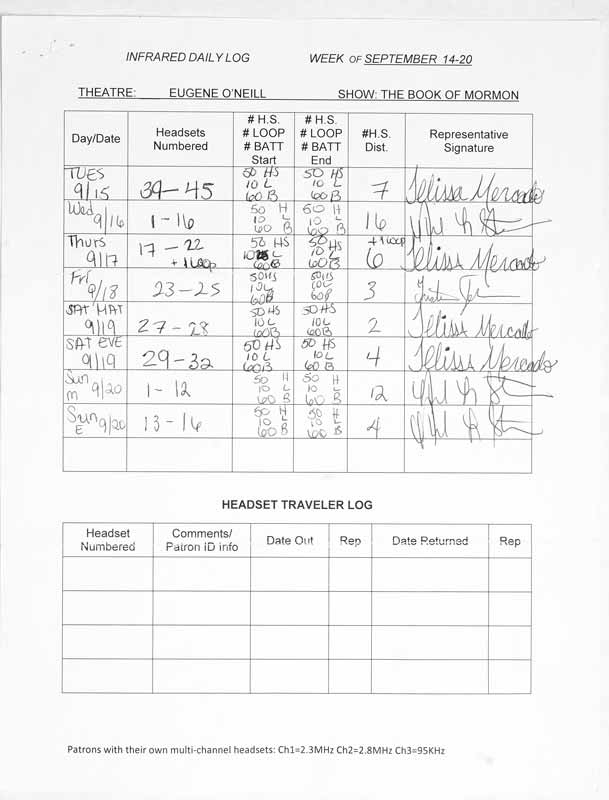 INFRARED DAILY LOG WEEK OF SEPTEMBER 14-20
THEATRE: EUGENE O'NEILL SHOW: THE BOOK OF MORMON
Day/Date Headsets Numbered # H.S. # LOOP # BATT Start # H.S. # LOOP # BATT End #H.S. Dist. Representative Signature
TUES 9/15 39-45 50 HS 10 L 60 B 50 HS 10 L 60 B 7 Jelissa Mercado
Wed 9/16 1-16 50 H 10 L 60 B 50 H 10 L 60 B 16
Thurs 9/17 17-22 +1 LOOP 50 HS L 60 B 50 HS 10 L 60 B +1 LOOP 6 Jelissa Mercado
Fri 9/18 23-25 50 HS 10 L 60B 50 HS 10L 60B 3
SAT MAT 9/19 27-28 50 HS 10 L 60 B 50 HS 10 L 60 B 2 Jelissa Mercado
SAT EVE 9/19 29-32 50 HS 10 L 60 B 50 HS 10 L 60 B 4 Jelissa Mercado
Sun m 9/20 1-12 50 H 10 L 60 B 50 H 10 L 60 B 12
Sun E 9/20 13-16 50 H 10 L 60 B 50 H 10 L 60 B 4
HEADSET TRAVELER LOG
Headset Numbered Comments/ Patron ID info Date Out Rep Date Returned Rep
Patrons with their own multi-channel headsets: Ch1=2.3MHz Ch2=2.8MHz Ch3=95KHz